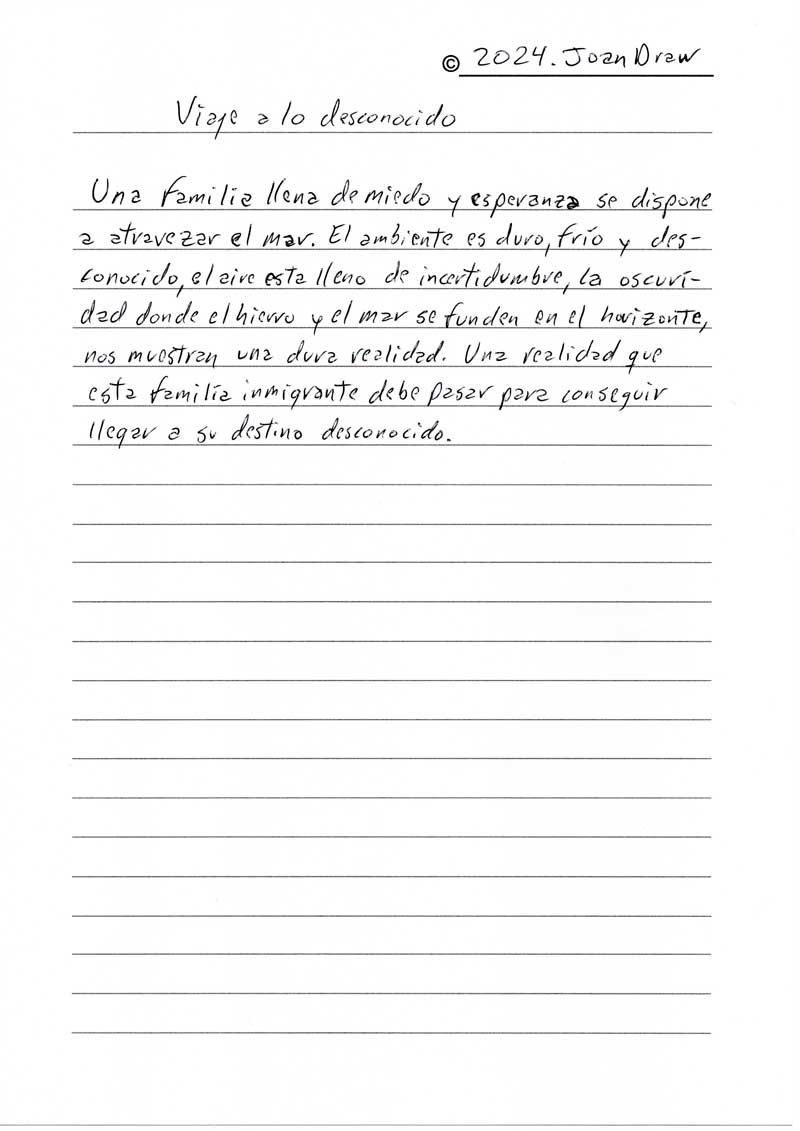 © 2024. Joan Draw
Viaje a lo desconocido
Una familia llena de miedo y esperanza se dispone
a atravezar el mar. El ambiente es duro, frío y des-
conocido, el aire esta lleno de incertidumbre, la oscuri-
dad donde el hierro y el mar se funden en el horizonte,
nos muestran una dura realidad. Una realidad que
esta familia inmigrante debe pasar para conseguir
llegar a su destino desconocido.